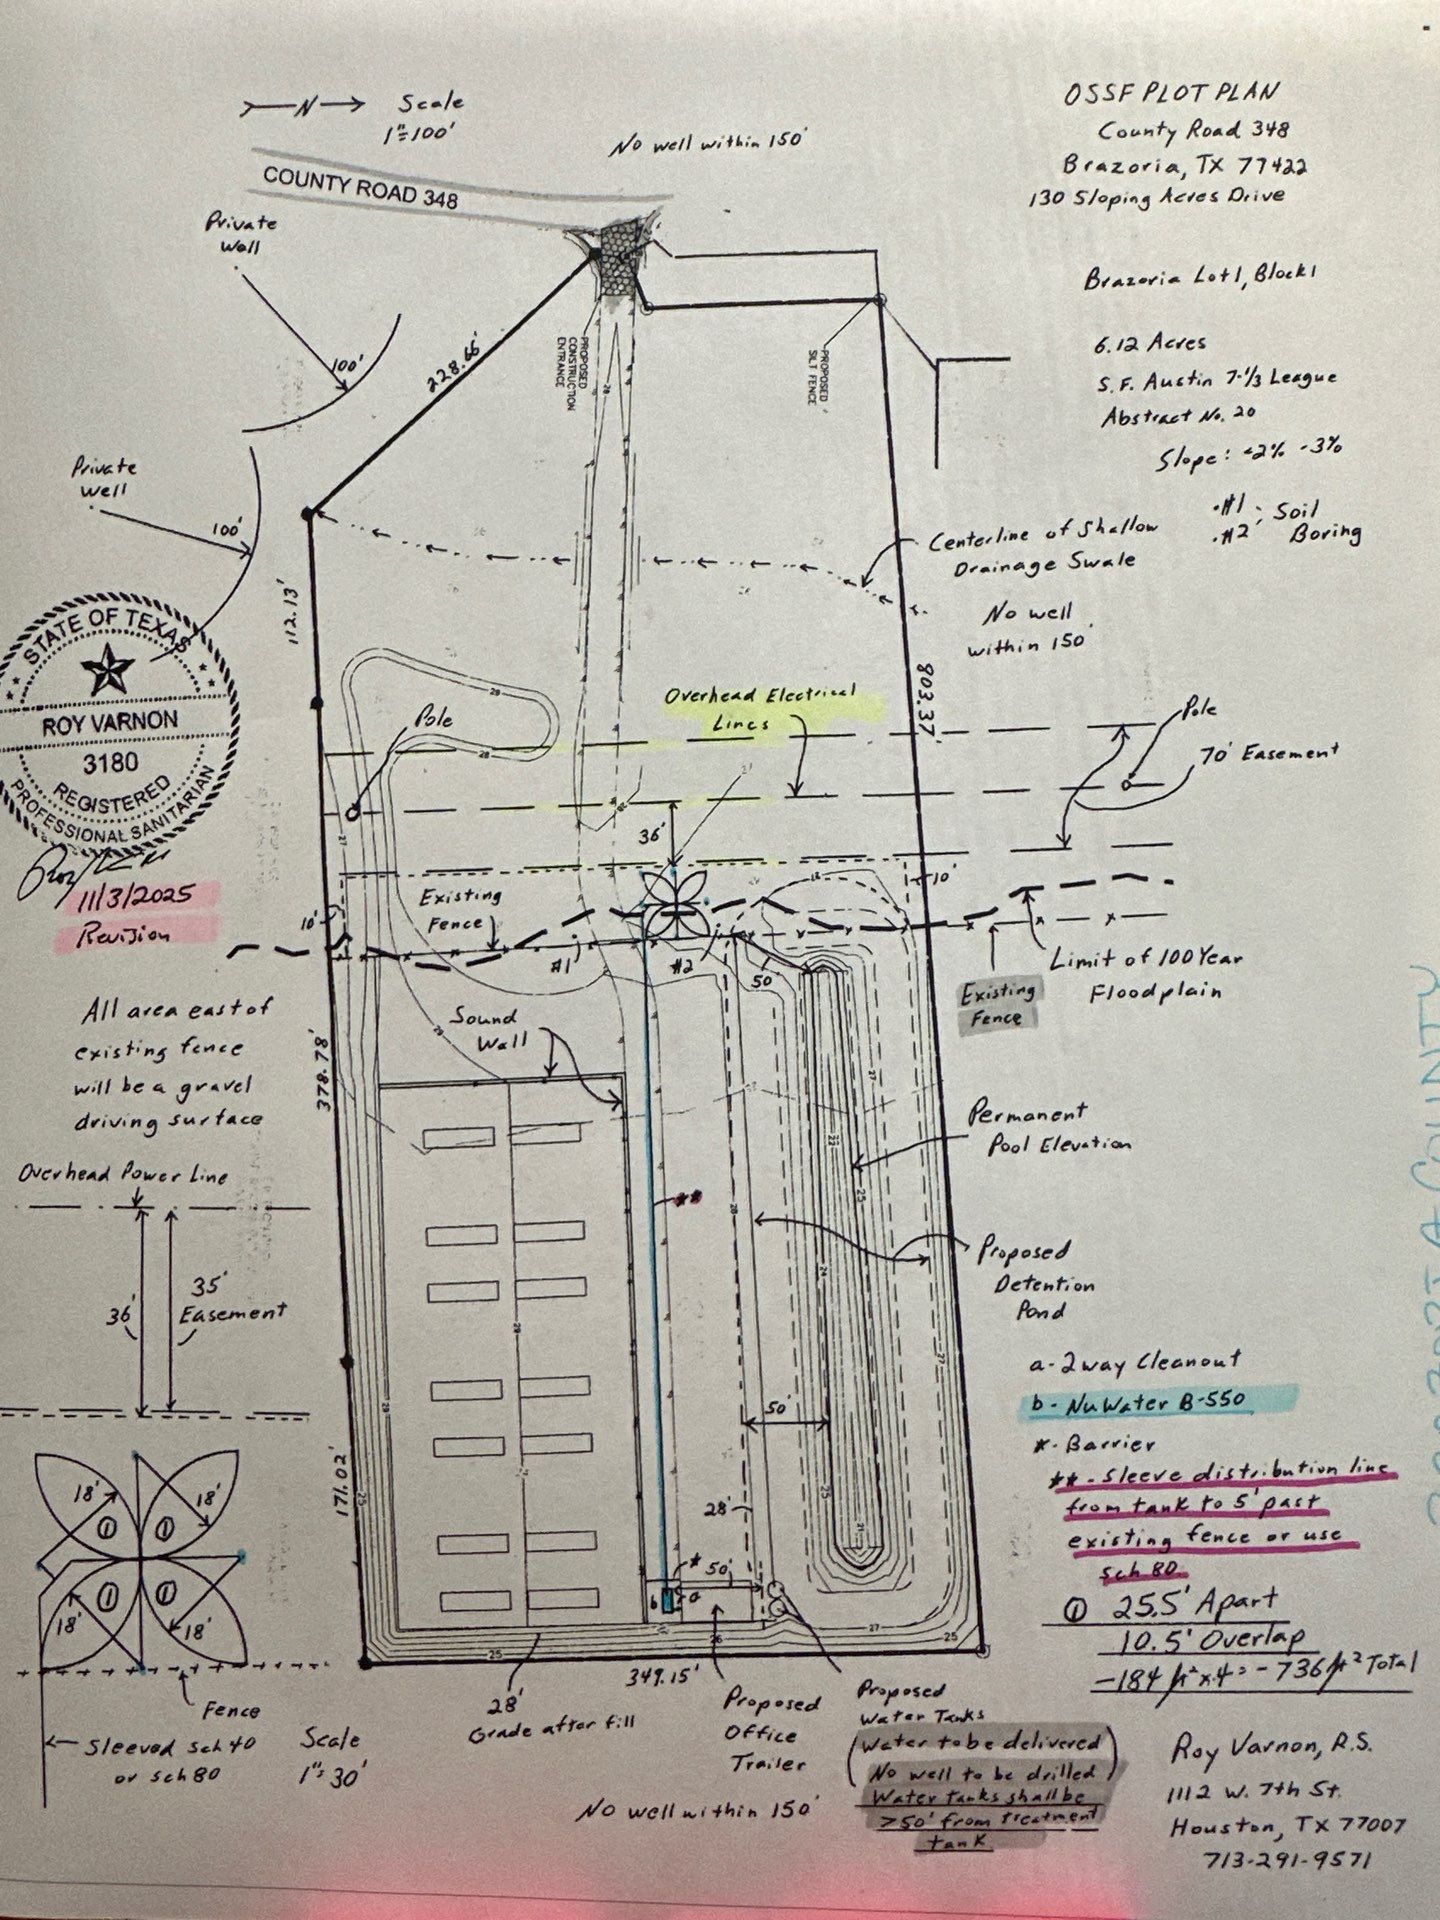 N
Scale
1"=100'
OSSF PLOT PLAN
County Road 348
Brazoria, TX 77422
130 Sloping Acres Drive
No well within 150'
COUNTY ROAD 348
Private
Well
100'
228.66'
PROPOSED
CONSTRUCTION
ENTRANCE
PROPOSED
SILT FENCE
Brazoria Lot 1, Block 1
6.12 Acres
S.F. Austin 7-1/3 League
Abstract No. 20
Slope: <2% -3%
.#1 ; Soil
.#2 Boring
Private
Well
100'
112.13'
Centerline of Shallow
Drainage Swale
No well
within 150'
803.37'
STATE OF TEXAS
ROY VARNON
3180
REGISTERED
PROFESSIONAL SANITARIAN
11/3/2025
Revision
Pole
Overhead Electrical
Lines
Pole
70' Easement
36'
10'
10'
Existing
Fence
#1
#2
50'
Existing
Fence
Limit of 100 Year
Floodplain
All area east of
existing fence
will be a gravel
driving surface
Sound
Wall
378.78'
Permanent
Pool Elevation
Overhead Power Line
36'
35'
Easement
**
Proposed
Detention
Pond
a- 2way Cleanout
b- NuWater B-550
*- Barrier
**- Sleeve distribution line
from tank to 5' past
existing fence or use
sch 80
① 25.5' Apart
10.5' Overlap
-184 ft² x 4 = -736 ft² Total
50'
171.02'
28'
*
50'
b
a
18'
18'
18'
18'
①
①
①
①
Fence
Sleeved sch 40
or sch 80
Scale
1"=30'
349.15'
28'
Grade after fill
Proposed
Office
Trailer
Proposed
Water Tanks
(Water to be delivered
No well to be drilled)
Water tanks shall be
>50' from treatment
tank
No well within 150'
Roy Varnon, R.S.
1112 W. 7th St.
Houston, TX 77007
713-291-9571